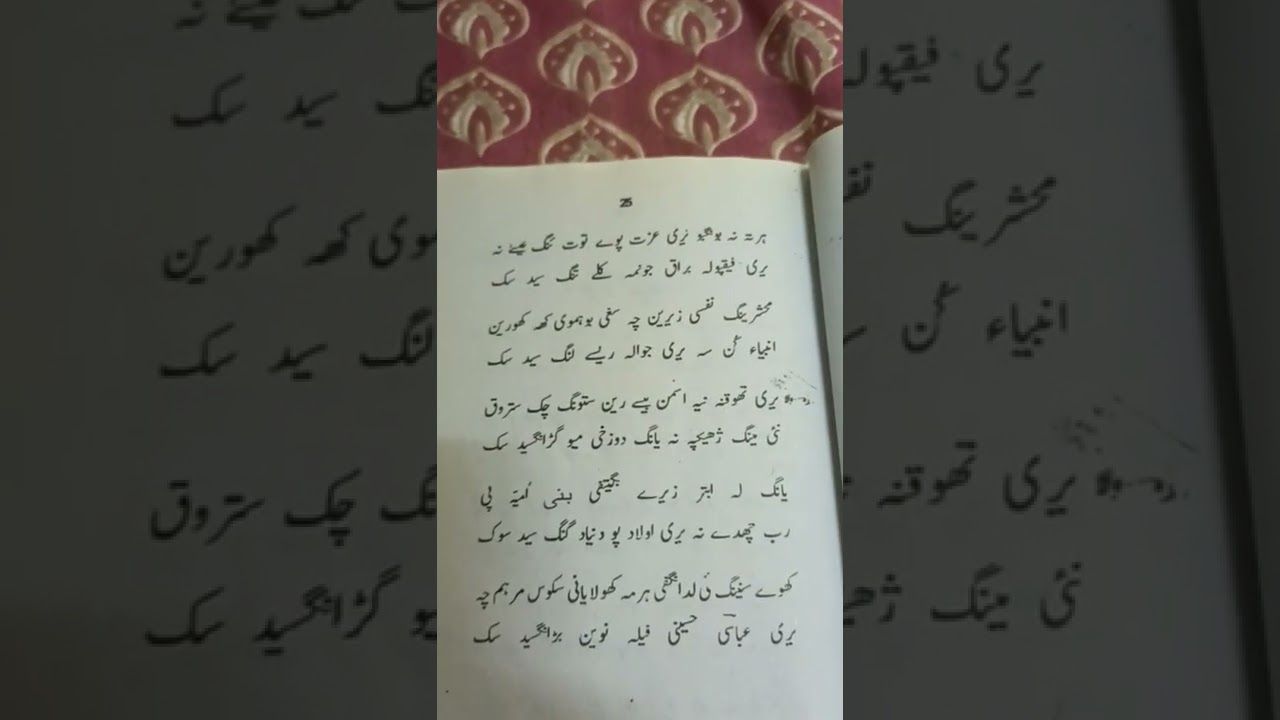 25
ہر تہ نہ بونگبو یَری عزت پوے توت تنگ عیسےٰ نہ
یری فیقپولہ براق جونمہ کلے تنگ سید سک
محشرینگ نفسی زیرین چہ سفی بوہموی کھہ کھورین
انبیاء کُن سہ یری جوالہ ریسے لنگ سید سک
یری تھوقنہ نیہ اتمن پیسے رین ستونگ چک ستروق
نئی مینگ ژھیکچہ نہ یانگ دوزخی میو گڑانگسید سک
یانگ لہ ابتر زیرے بگیتفی بنی اُمیّہ پی
رب چھدے نہ یری اولاد پو دنیاد گنگ سید سوک
کھوے سنینگ ئی لدانگفی ہر مہ کھولا یانی سکوس مرہم چہ
یری عباسی حسینی فیلہ نوین بڑانگسید سک